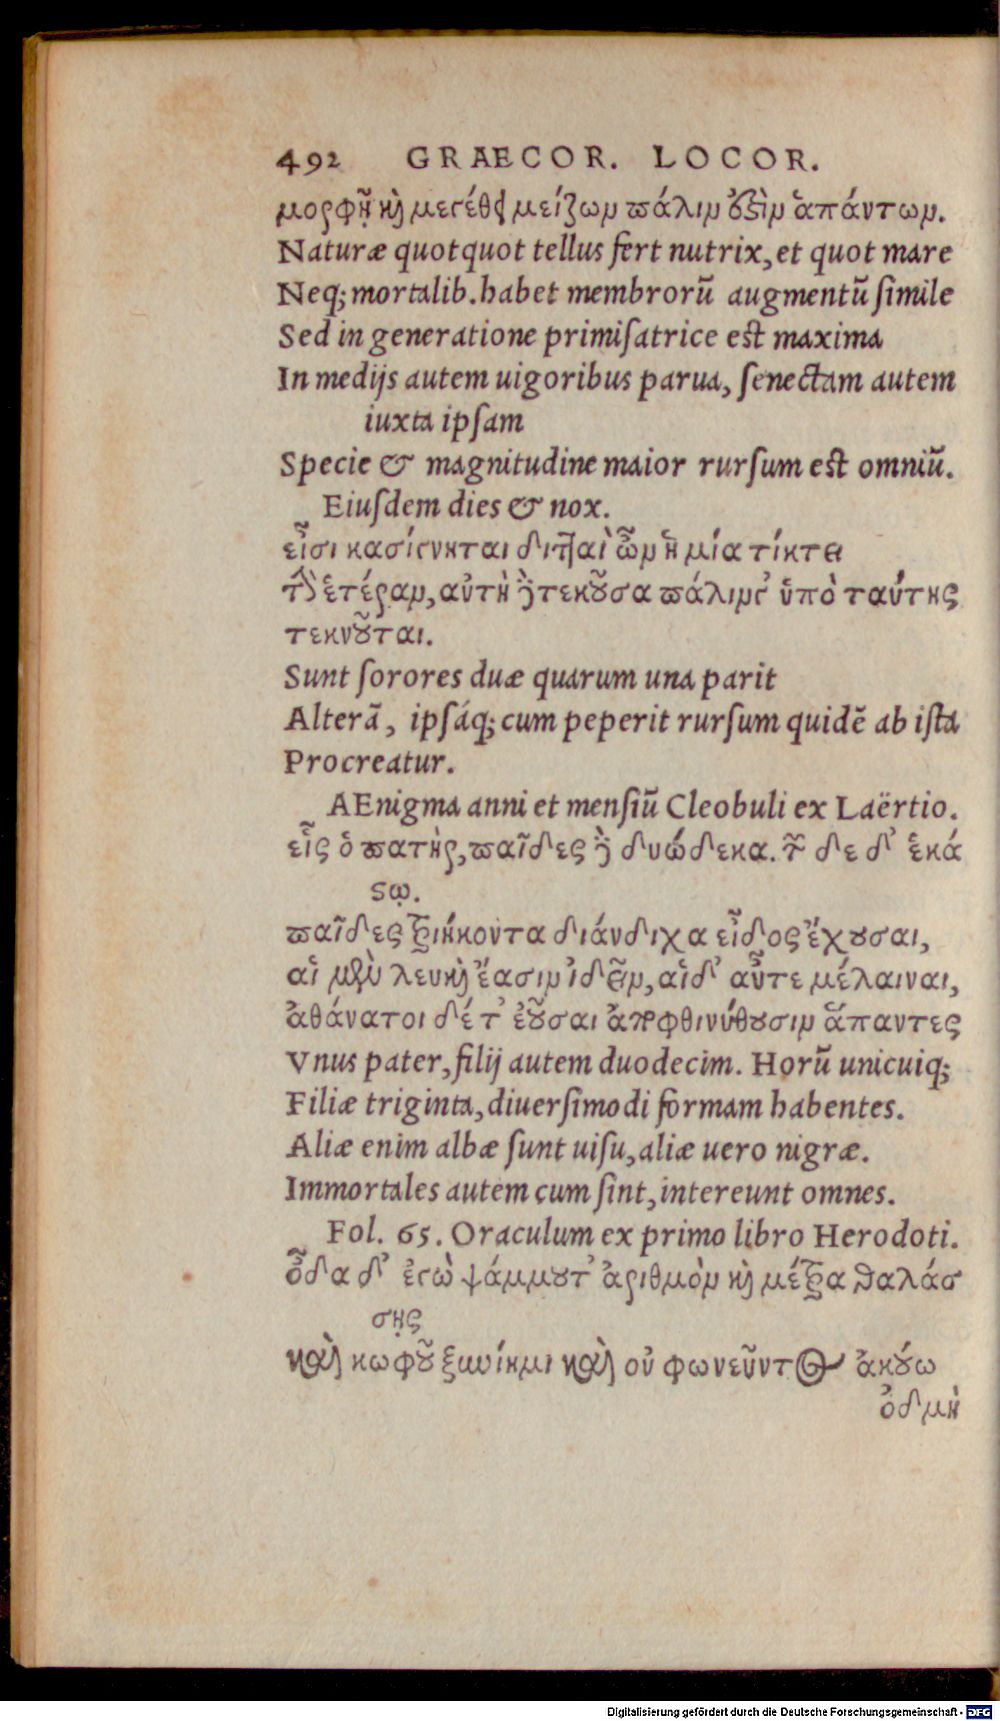 492 GRAECOR. LOCOR.
μορφῇ καὶ μεγέθει μείζων πάλιν ἐστὶν ἁπάντων.
Naturæ quotquot tellus fert nutrix, et quot mare
Neq; mortalib. habet membrorū augmentū ſimile
Sed in generatione primiſatrice eſt maxima
In medijs autem uigoribus parua, ſenectam autem
iuxta ipſam
Specie & magnitudine maior rurſum eſt omniū.
Eiuſdem dies & nox.
εἶσι κασίγνηται διτταὶ ὧν ἡ μία τίκτει
τὴν ἑτέραν, αὐτὴ δὲ τεκοῦσα πάλιν γ᾽ ὑπὸ ταύτης
τεκνοῦται.
Sunt ſorores duæ quarum una parit
Alterā, ipſáq; cum peperit rurſum quidē ab iſta
Procreatur.
AEnigma anni et menſiū Cleobuli ex Laërtio.
εἷς ὁ πατὴρ, παῖδες δὲ δυώδεκα. τῶν δε δ᾽ ἑκά
στῳ.
παῖδες τριήκοντα διάνδιχα εἶδος ἔχουσαι,
αἱ μὲν λευκαὶ ἔασιν ἰδεῖν, αἱ δ᾽ αὖτε μέλαιναι,
ἀθάνατοι δέ τ᾽ ἐοῦσαι ἀποφθινύθουσιν ἅπαντες
Vnus pater, filij autem duodecim. Horū unicuiq;
Filiæ triginta, diuerſimodi formam habentes.
Aliæ enim albæ ſunt uiſu, aliæ uero nigræ.
Immortales autem cum ſint, intereunt omnes.
Fol. 65. Oraculum ex primo libro Herodoti.
οἶδα δ᾽ ἐγὼ ψάμμου τ᾽ ἀριθμὸν καὶ μέτρα θαλάσ
σης
καὶ κωφοῦ ξυνίημι καὶ οὐ φωνεῦντος ἀκούω
ὀδμὴ
Digitalisierung gefördert durch die Deutsche Forschungsgemeinschaft - DFG